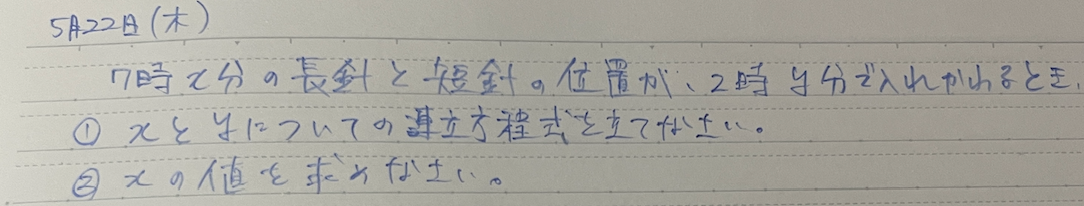 5月22日(木)
7時x分の長針と短針の位置が、2時y分で入れかわるとき、
① xとyについての連立方程式を立てなさい。
② xの値を求めなさい。